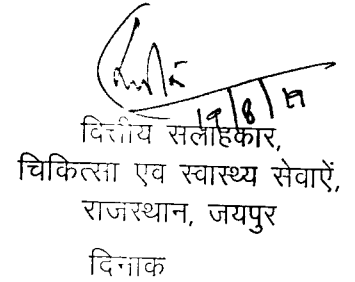 19/8/17
वित्तीय सलाहकार,
चिकित्सा एव स्वास्थ्य सेवाऐं,
राजस्थान, जयपुर
दिनाक